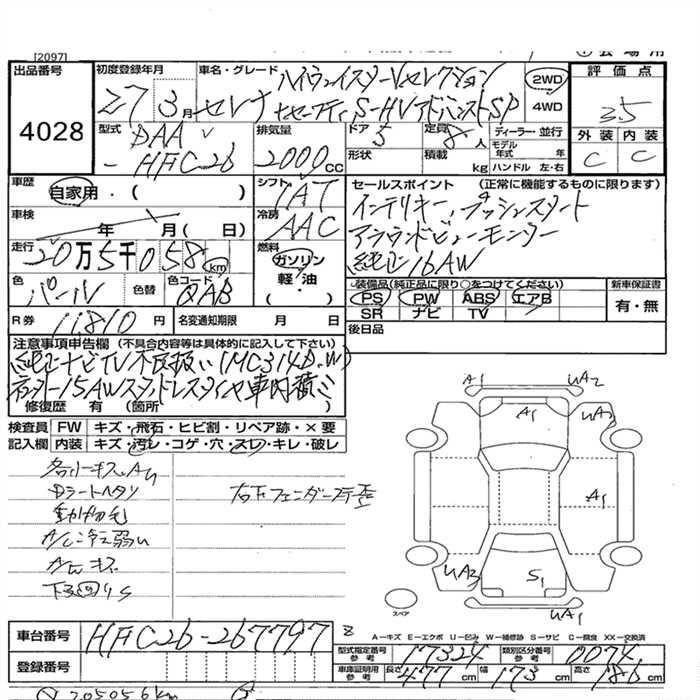 [2097]
出品番号
4028
初度登録年月
27 3月
車名・グレード
ハイウェイスターVセレクション
セレナ +セーフティS-HVアドバンストSP
2WD
4WD
評価点
3.5
外装 内装
C C
型式
DAA
-HFC26
排気量
2000cc
ドア
5
定員
8人
形状
積載
kg
ディーラー・並行
モデル年式 年
ハンドル 左・右
車歴
自家用・( )
シフト
IAT
車検
年 月( 日)
冷房
AAC
走行
20万5千058km
燃料
ガソリン
軽・油
( )
色
パール
色替
色コード
QAB
R券
11,810円
名変通知期限 月 日
セールスポイント (正常に機能するものに限ります)
インテリキー、プッシュスタート
アラウンドビューモニター
純正16AW
装備品(純正品に限り○をつけてください)
PS PW ABS エアB
SR ナビ TV
新車保証書
有・無
後日品
注意事項申告欄 (不具合内容等は具体的に記入して下さい)
純正ナビTV不良扱い(MC314D-W)
15AWスタッドレスタイヤ車内積ミ
修復歴 有 (箇所 )
検査員記入欄
FW キズ・飛石・ヒビ割・リペア跡・×要
内装 キズ・汚レ・コゲ・穴・スレ・キレ・破レ
Dシートヘタリ
動物毛
A/C冷え弱い
下回りS
右F フェンダーステー歪
A1 UA2
A1 UA2
A1
UA3 S1
UA1
スペア
A－キズ E－エクボ U－凹み W－補修跡 S－サビ C－腐食 XX－交換済
車台番号
HFC26-267797
登録番号
型式指定番号 参考
17324
類別区分番号 参考
0074
車庫証明用 参考
長さ 477cm 幅 173cm 高さ 186cm
205056km